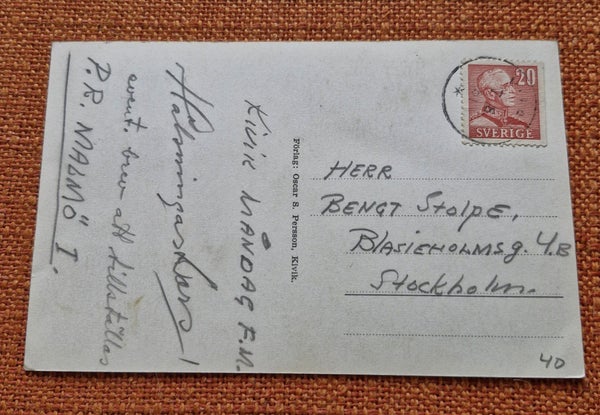 KIVIK MÅNDAG E.M.
Hälsningar Lars!
event. brev att tillställas
P.R. MALMÖ 1.
Förlag: Oscar S. Persson, Kivik.
20
SVERIGE
HERR
BENGT STOLPE,
BLASIEHOLMSG. 4.B
Stockholm.
40